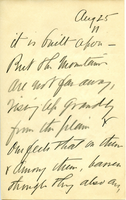 Aug 25
it is built upon —
But the Mountains
are not far away,
rising up grandly
from the plain &
perfect that in them
& among them, barren
though they also are,